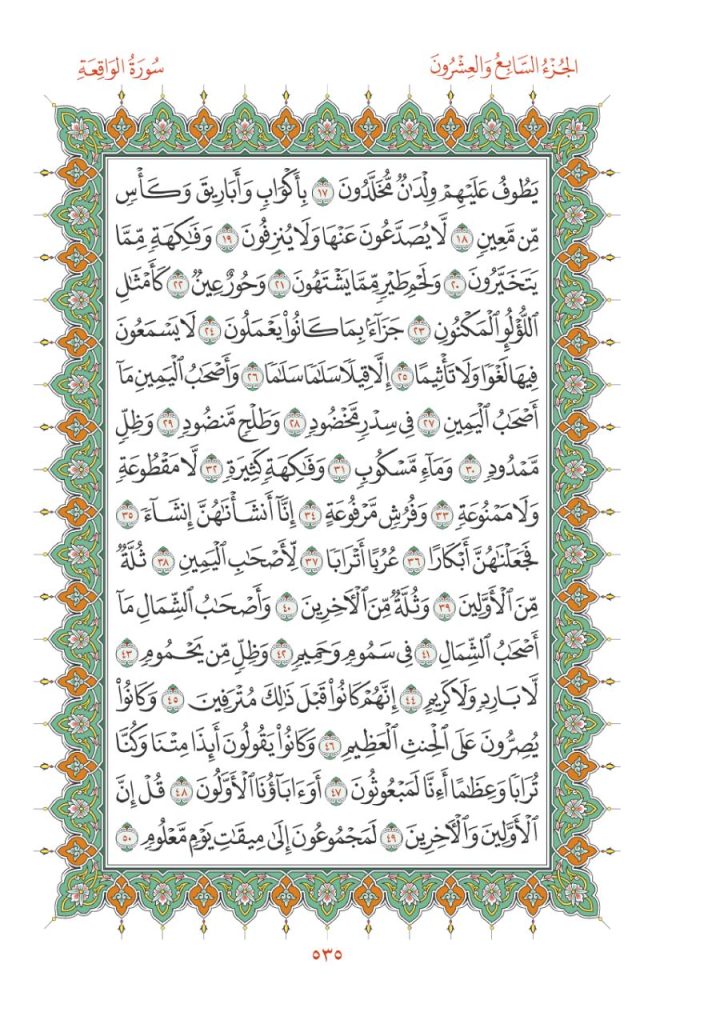 الجُزْءُ السَّابِعُ وَالعِشْرُونَ
سُورَةُ الوَاقِعَةِ
يَطُوفُ عَلَيْهِمْ وِلْدَٰنٌ مُّخَلَّدُونَ ١٧ بِأَكْوَابٍ وَأَبَارِيقَ وَكَأْسٍ
مِّن مَّعِينٍ ١٨ لَّا يُصَدَّعُونَ عَنْهَا وَلَا يُنزِفُونَ ١٩ وَفَٰكِهَةٍ مِّمَّا
يَتَخَيَّرُونَ ٢٠ وَلَحْمِ طَيْرٍ مِّمَّا يَشْتَهُونَ ٢١ وَحُورٌ عِينٌ ٢٢ كَأَمْثَٰلِ
ٱللُّؤْلُوِٕ ٱلْمَكْنُونِ ٢٣ جَزَآءًۢ بِمَا كَانُوا۟ يَعْمَلُونَ ٢٤ لَا يَسْمَعُونَ
فِيهَا لَغْوًا وَلَا تَأْثِيمًا ٢٥ إِلَّا قِيلًا سَلَٰمًا سَلَٰمًا ٢٦ وَأَصْحَٰبُ ٱلْيَمِينِ مَآ
أَصْحَٰبُ ٱلْيَمِينِ ٢٧ فِى سِدْرٍ مَّخْضُودٍ ٢٨ وَطَلْحٍ مَّنضُودٍ ٢٩ وَظِلٍّ
مَّمْدُودٍ ٣٠ وَمَآءٍ مَّسْكُوبٍ ٣١ وَفَٰكِهَةٍ كَثِيرَةٍ ٣٢ لَّا مَقْطُوعَةٍ
وَلَا مَمْنُوعَةٍ ٣٣ وَفُرُشٍ مَّرْفُوعَةٍ ٣٤ إِنَّآ أَنشَأْنَٰهُنَّ إِنشَآءً ٣٥
فَجَعَلْنَٰهُنَّ أَبْكَارًا ٣٦ عُرُبًا أَتْرَابًا ٣٧ لِّأَصْحَٰبِ ٱلْيَمِينِ ٣٨ ثُلَّةٌ
مِّنَ ٱلْأَوَّلِينَ ٣٩ وَثُلَّةٌ مِّنَ ٱلْءَاخِرِينَ ٤٠ وَأَصْحَٰبُ ٱلشِّمَالِ مَآ
أَصْحَٰبُ ٱلشِّمَالِ ٤١ فِى سَمُومٍ وَحَمِيمٍ ٤٢ وَظِلٍّ مِّن يَحْمُومٍ ٤٣
لَّا بَارِدٍ وَلَا كَرِيمٍ ٤٤ إِنَّهُمْ كَانُوا۟ قَبْلَ ذَٰلِكَ مُتْرَفِينَ ٤٥ وَكَانُوا۟
يُصِرُّونَ عَلَى ٱلْحِنثِ ٱلْعَظِيمِ ٤٦ وَكَانُوا۟ يَقُولُونَ أَئِذَا مِتْنَا وَكُنَّا
تُرَابًا وَعِظَٰمًا أَءِنَّا لَمَبْعُوثُونَ ٤٧ أَوَءَابَآؤُنَا ٱلْأَوَّلُونَ ٤٨ قُلْ إِنَّ
ٱلْأَوَّلِينَ وَٱلْءَاخِرِينَ ٤٩ لَمَجْمُوعُونَ إِلَىٰ مِيقَٰتِ يَوْمٍ مَّعْلُومٍ ٥٠
٥٣٥